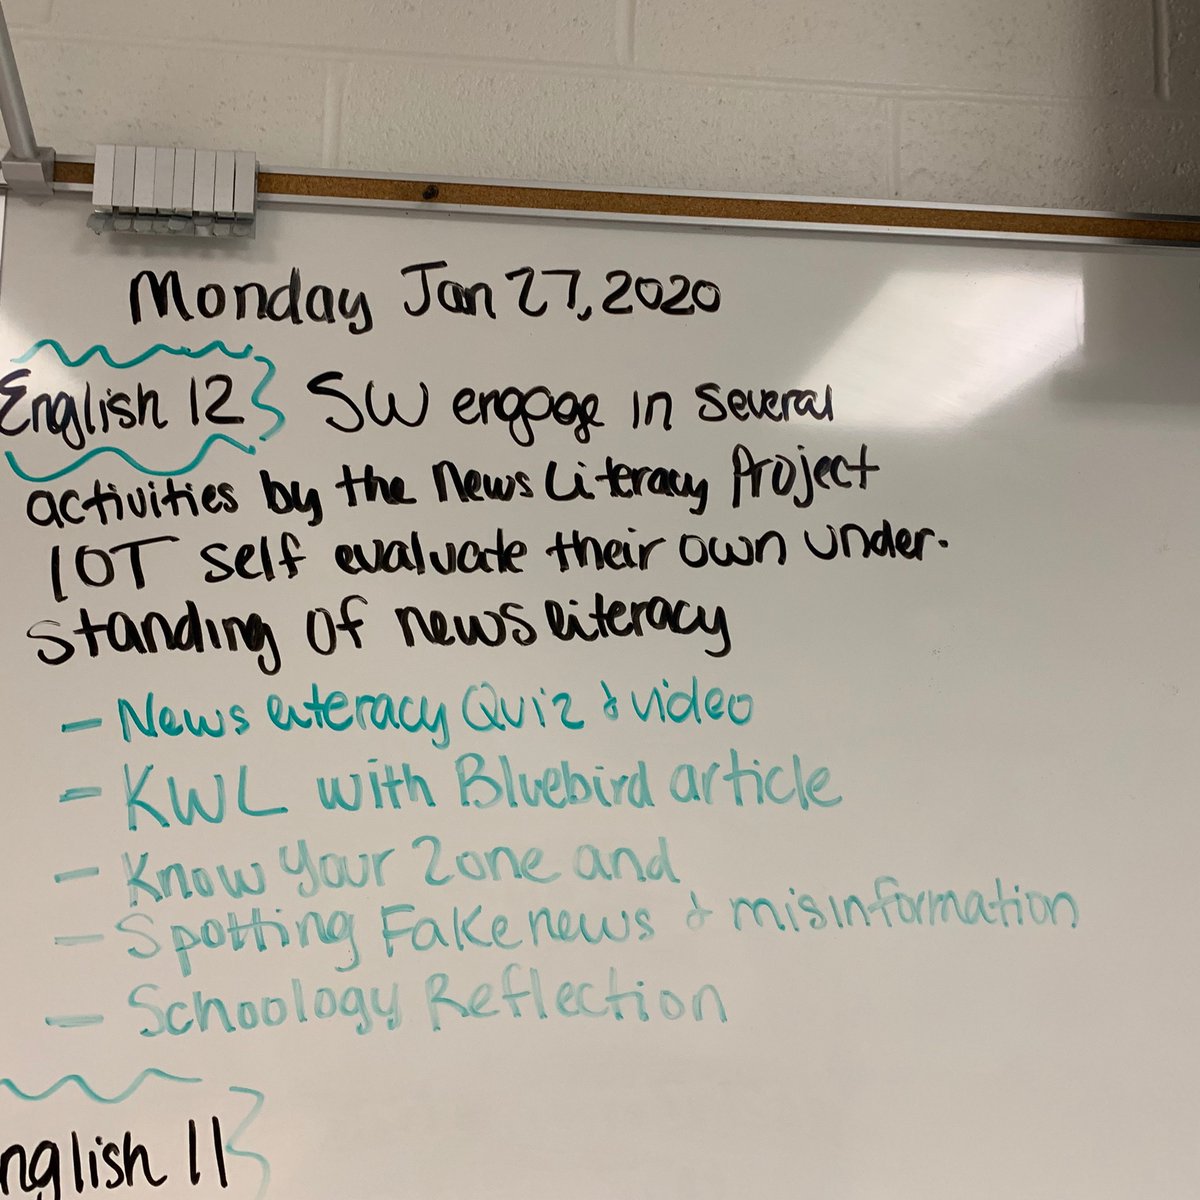 Monday Jan 27, 2020
English 12 } SW engage in several
activities by the News Literacy Project
IOT self evaluate their own under-
standing of news literacy
- News literacy Quiz & video
- KWL with Bluebird article
- Know Your Zone and
- Spotting Fake news & misinformation
- Schoology Reflection
nglish 11 }